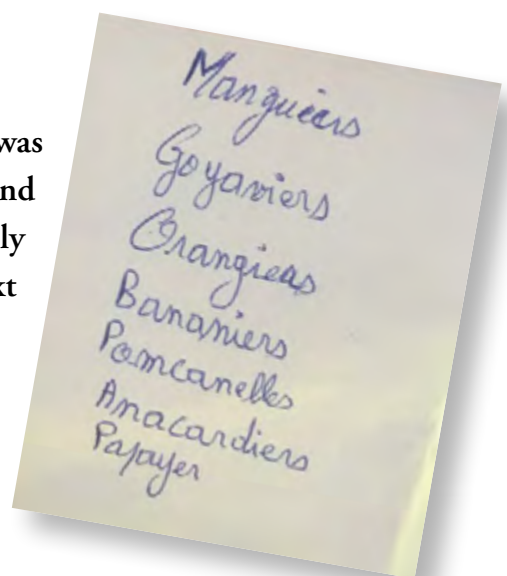 was
nd
ly
xt
Manguiers
Goyaviers
Orangieas
Bananiers
Pomcanelles
Anacardiers
Papayer